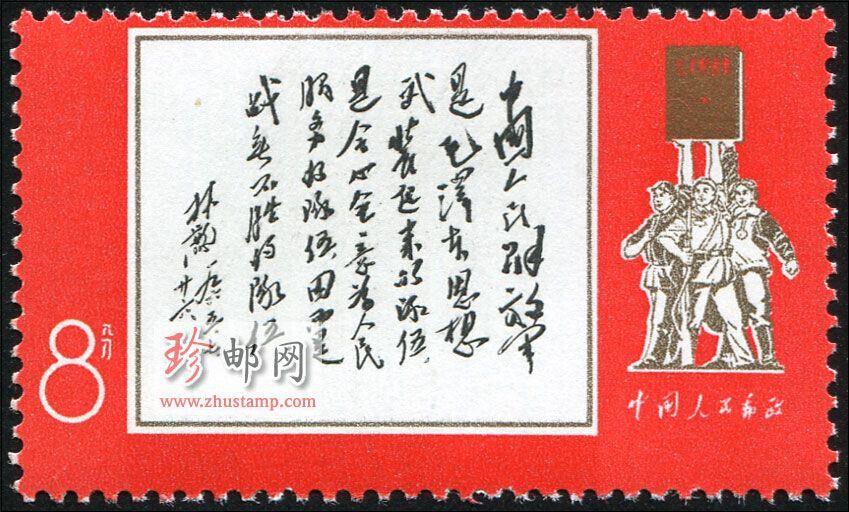 中国人民解放军
是毛澤东思想
武装起来的隊伍,
是全心全意为人民
服务的隊伍因而是
战无不胜的隊伍
林彪一九六五、七
、廿六、
8分
中国人民邮政
珍邮网
www.zhustamp.com